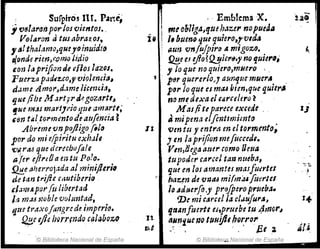 Suspiros III. Parte,
y volaron por los vientos.
Volarán á tus abraços, 10
y al thalamo, que yo inuidio
donde rien, como lidio
con la prisiõn de estos lazos.
Fuerza padezco, y violencia,
dame Amor, dame licencia,
que sobre Martyr de gozarte,
que mas martyrio que amarte,
con tal tormento de ausencia!
Abreme vn postigo solo 11
por do mi espiritu exhale
à ser estrella en tu Polo.
Que aherrojada al ministerio
de tan triste cautiberio
clama por su libertad
la mas noble voluntad,
que traxo sangre de imperio.
Que este horrendo calabozo 12
Emblema X. 229
me obliga, que hazer no pueda
lo bueno que quiero, y veda
aun vn suspiro a mi gozo.
Que es esto? Quiero, y no quiero,
y lo que no quiero, muero
por quererlo, y aunque muera
por lo que es mas bien, que quiera
no me dexa el carcelero!
Mas si te parece excede 13
à mi pena el sentimiento
ven tu y entra en el tormento,
y en la prision me sucede.
Ven, llega à uer como llena
tu poder carcel tan nueba,
que en los amantes mas fuertes
hazen de vnas mismas suertes
lo aduerso, y prospero prueba.
De mi carcel la clausura, 14
quan fuerte es, pruebe tu Amor,
aunque no tuuiste horror
Et 2
© Biblioteca Nacional de España
© Biblioteca Nacional de España